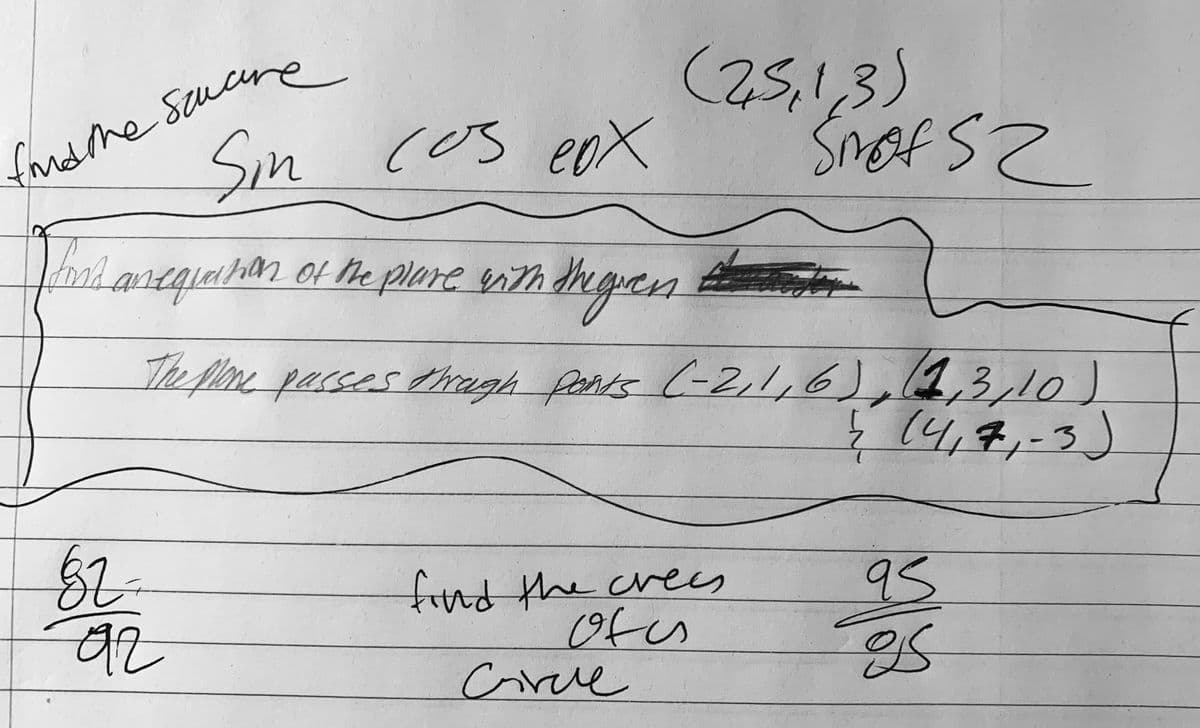 find the square
(25,1,3)
Sin cos
S2
find an equation of the plane with the given
The plane passes through points (-2,1,6), (1,3,10)
& (4,7,-3)
82
92
find the area
of a
Circle
95
25